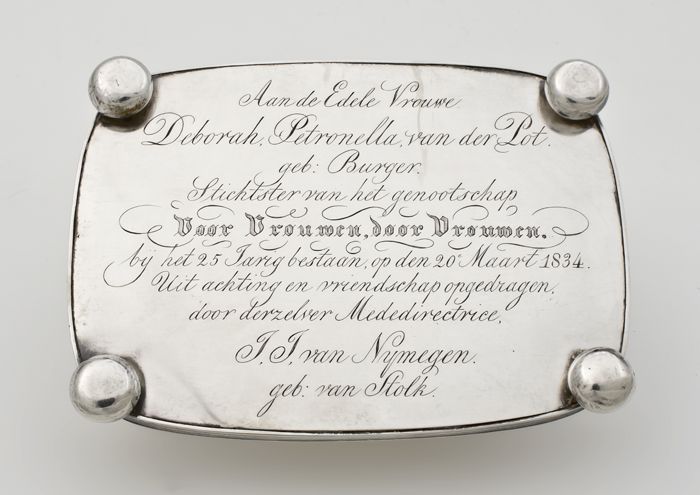 Aan de Edele Vrouwe
Deborah, Petronella, van der Pot.
geb: Burger.
Stichtster van het genootschap
Voor Vrouwen, door Vrouwen.
bij het 25 Jarig bestaan, op den 20e Maart 1834.
Uit achting en vriendschap opgedragen,
door derzelver Mededirectrice,
J. J. van Nymegen.
geb: van Stolk.